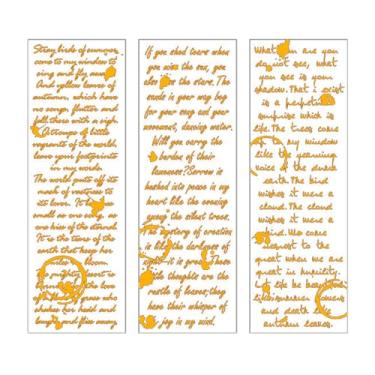 Stray birds of summer
come to my window to
sing and fly away.
And yellow leaves of
autumn, which have
no songs, flutter and
fall there with a sigh.
A troupe of little
vagrants of the world,
leave your footprints
in my words.
The world puts off its
mask of vastness to
its lover. It
small as one song, as
one kiss of the eternal.
It is the tears of the
earth that keep her
bloom.
the mighty desert is
the
love of
who
shakes her head and
laughs and flies away.
If you shed tears when
you miss the sun, you
also miss the stars. The
sands in your way beg
for your song and your
movement, dancing water.
Will you carry the
burden of their
lameness? Sorrow is
hushed into peace in my
heart like the evening
among the silent trees.
mystery of creation
is like the darkness of
night it is great. These
little thoughts are the
rustle of leaves; they
have their whisper of
joy in my mind.
What you are you
do not see, what
you see is your
shadow. That i exist
is a perpetual
surprise which is
life. The trees come
my window
like the yearning
voice of the dumb
earth. The bird
wishes it were a
cloud. The cloud
wishes it were a
bird. We come
nearest to the
great when we are
great in humility.
Let life be beautiful
like summer flowers
and death like
autumn leaves.